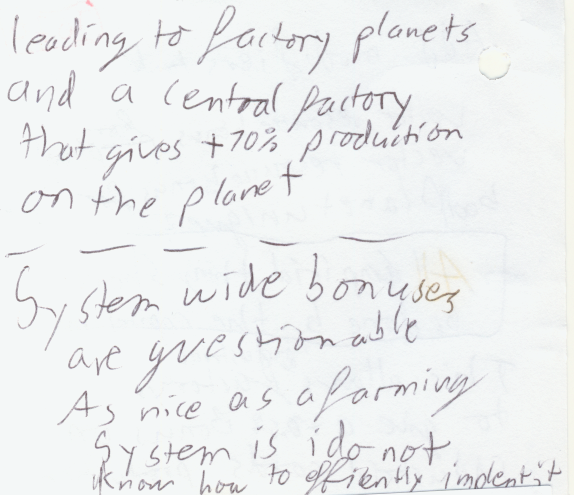 leading to factory planets
and a central factory
that gives +70% production
on the planet
System wide bonuses
are questionable
As nice as a farming
System is i do not
know how to effiently implent it